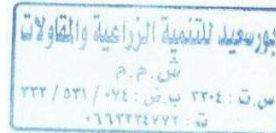 بورسعيد للتنمية الزراعية والمقاولات
ش.م.م
س.ت: ٣٣٠٤ ب.ض: ٠٧٤ / ٥٣١ / ٣٣٢
ت: ٠٦٦٣٣٣٤٧٧٢